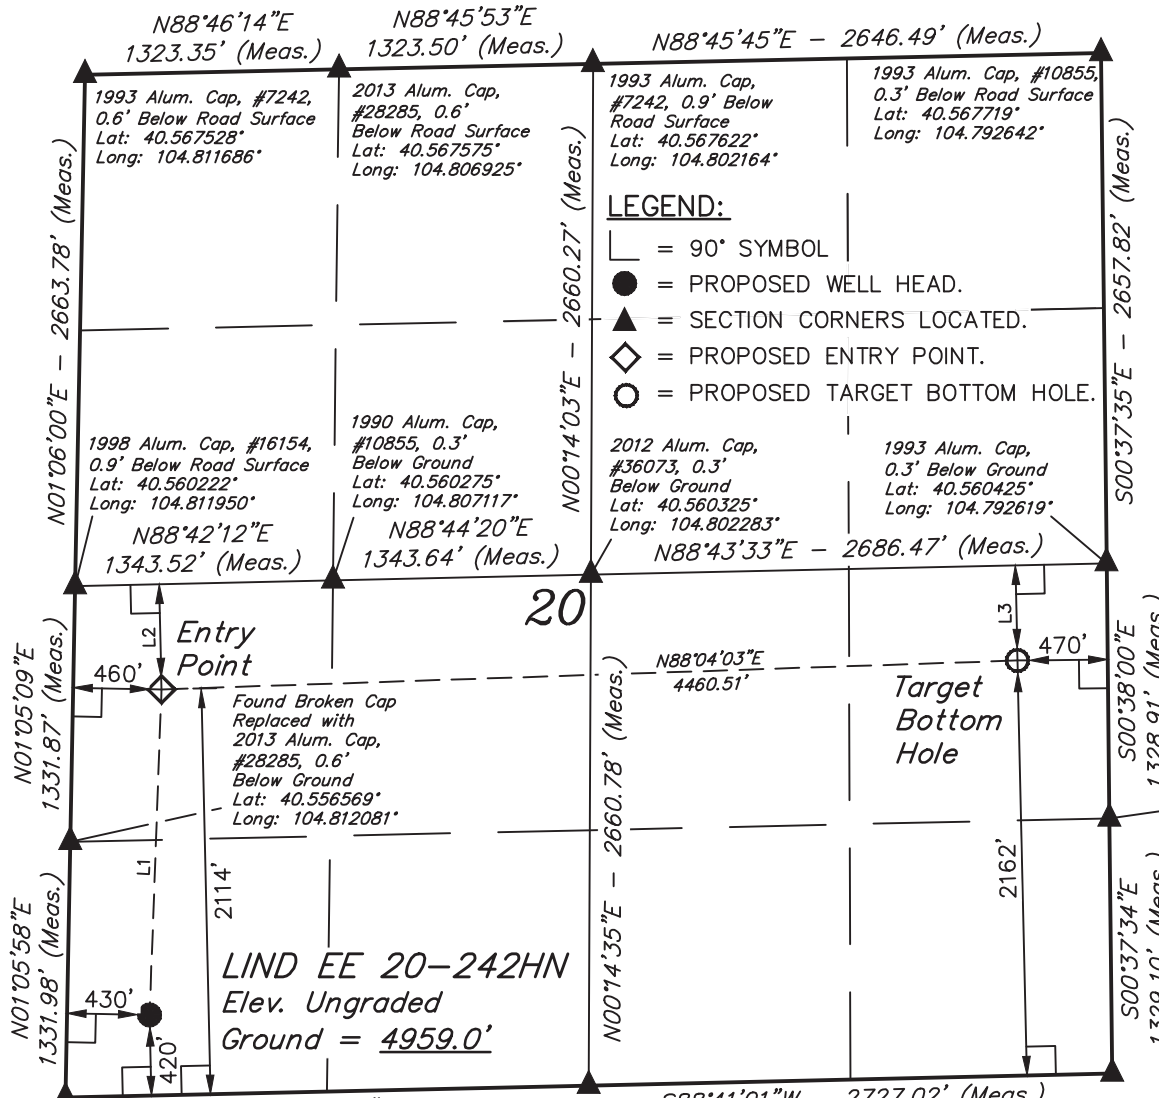 N88°46'14"E
1323.35' (Meas.)
N88°45'53"E
1323.50' (Meas.)
N88°45'45"E – 2646.49' (Meas.)
1993 Alum. Cap, #7242,
0.6' Below Road Surface
Lat: 40.567528°
Long: 104.811686°
2013 Alum. Cap,
#28285, 0.6'
Below Road Surface
Lat: 40.567575°
Long: 104.806925°
1993 Alum. Cap,
#7242, 0.9' Below
Road Surface
Lat: 40.567622°
Long: 104.802164°
1993 Alum. Cap, #10855,
0.3' Below Road Surface
Lat: 40.567719°
Long: 104.792642°
N01°06'00"E – 2663.78' (Meas.)
N00°14'03"E – 2660.27' (Meas.)
S00°37'35"E – 2657.82' (Meas.)
LEGEND:
= 90° SYMBOL
= PROPOSED WELL HEAD.
= SECTION CORNERS LOCATED.
= PROPOSED ENTRY POINT.
= PROPOSED TARGET BOTTOM HOLE.
1998 Alum. Cap, #16154,
0.9' Below Road Surface
Lat: 40.560222°
Long: 104.811950°
1990 Alum. Cap,
#10855, 0.3'
Below Ground
Lat: 40.560275°
Long: 104.807117°
2012 Alum. Cap,
#36073, 0.3'
Below Ground
Lat: 40.560325°
Long: 104.802283°
1993 Alum. Cap,
0.3' Below Ground
Lat: 40.560425°
Long: 104.792619°
N88°42'12"E
1343.52' (Meas.)
N88°44'20"E
1343.64' (Meas.)
N88°43'33"E – 2686.47' (Meas.)
20
L2
Entry
Point
460'
L3
470'
N88°04'03"E
4460.51'
Target
Bottom
Hole
N01°05'09"E
1331.87' (Meas.)
S00°38'00"E
1328.91' (Meas.)
Found Broken Cap
Replaced with
2013 Alum. Cap,
#28285, 0.6'
Below Ground
Lat: 40.556569°
Long: 104.812081°
L1
2114'
N00°14'35"E – 2660.78' (Meas.)
2162'
N01°05'58"E
1331.98' (Meas.)
S00°37'34"E
1329.10' (Meas.)
LIND EE 20–242HN
Elev. Ungraded
Ground = 4959.0'
430'
420'
S88°41'01"W 2727.02' (Meas.)